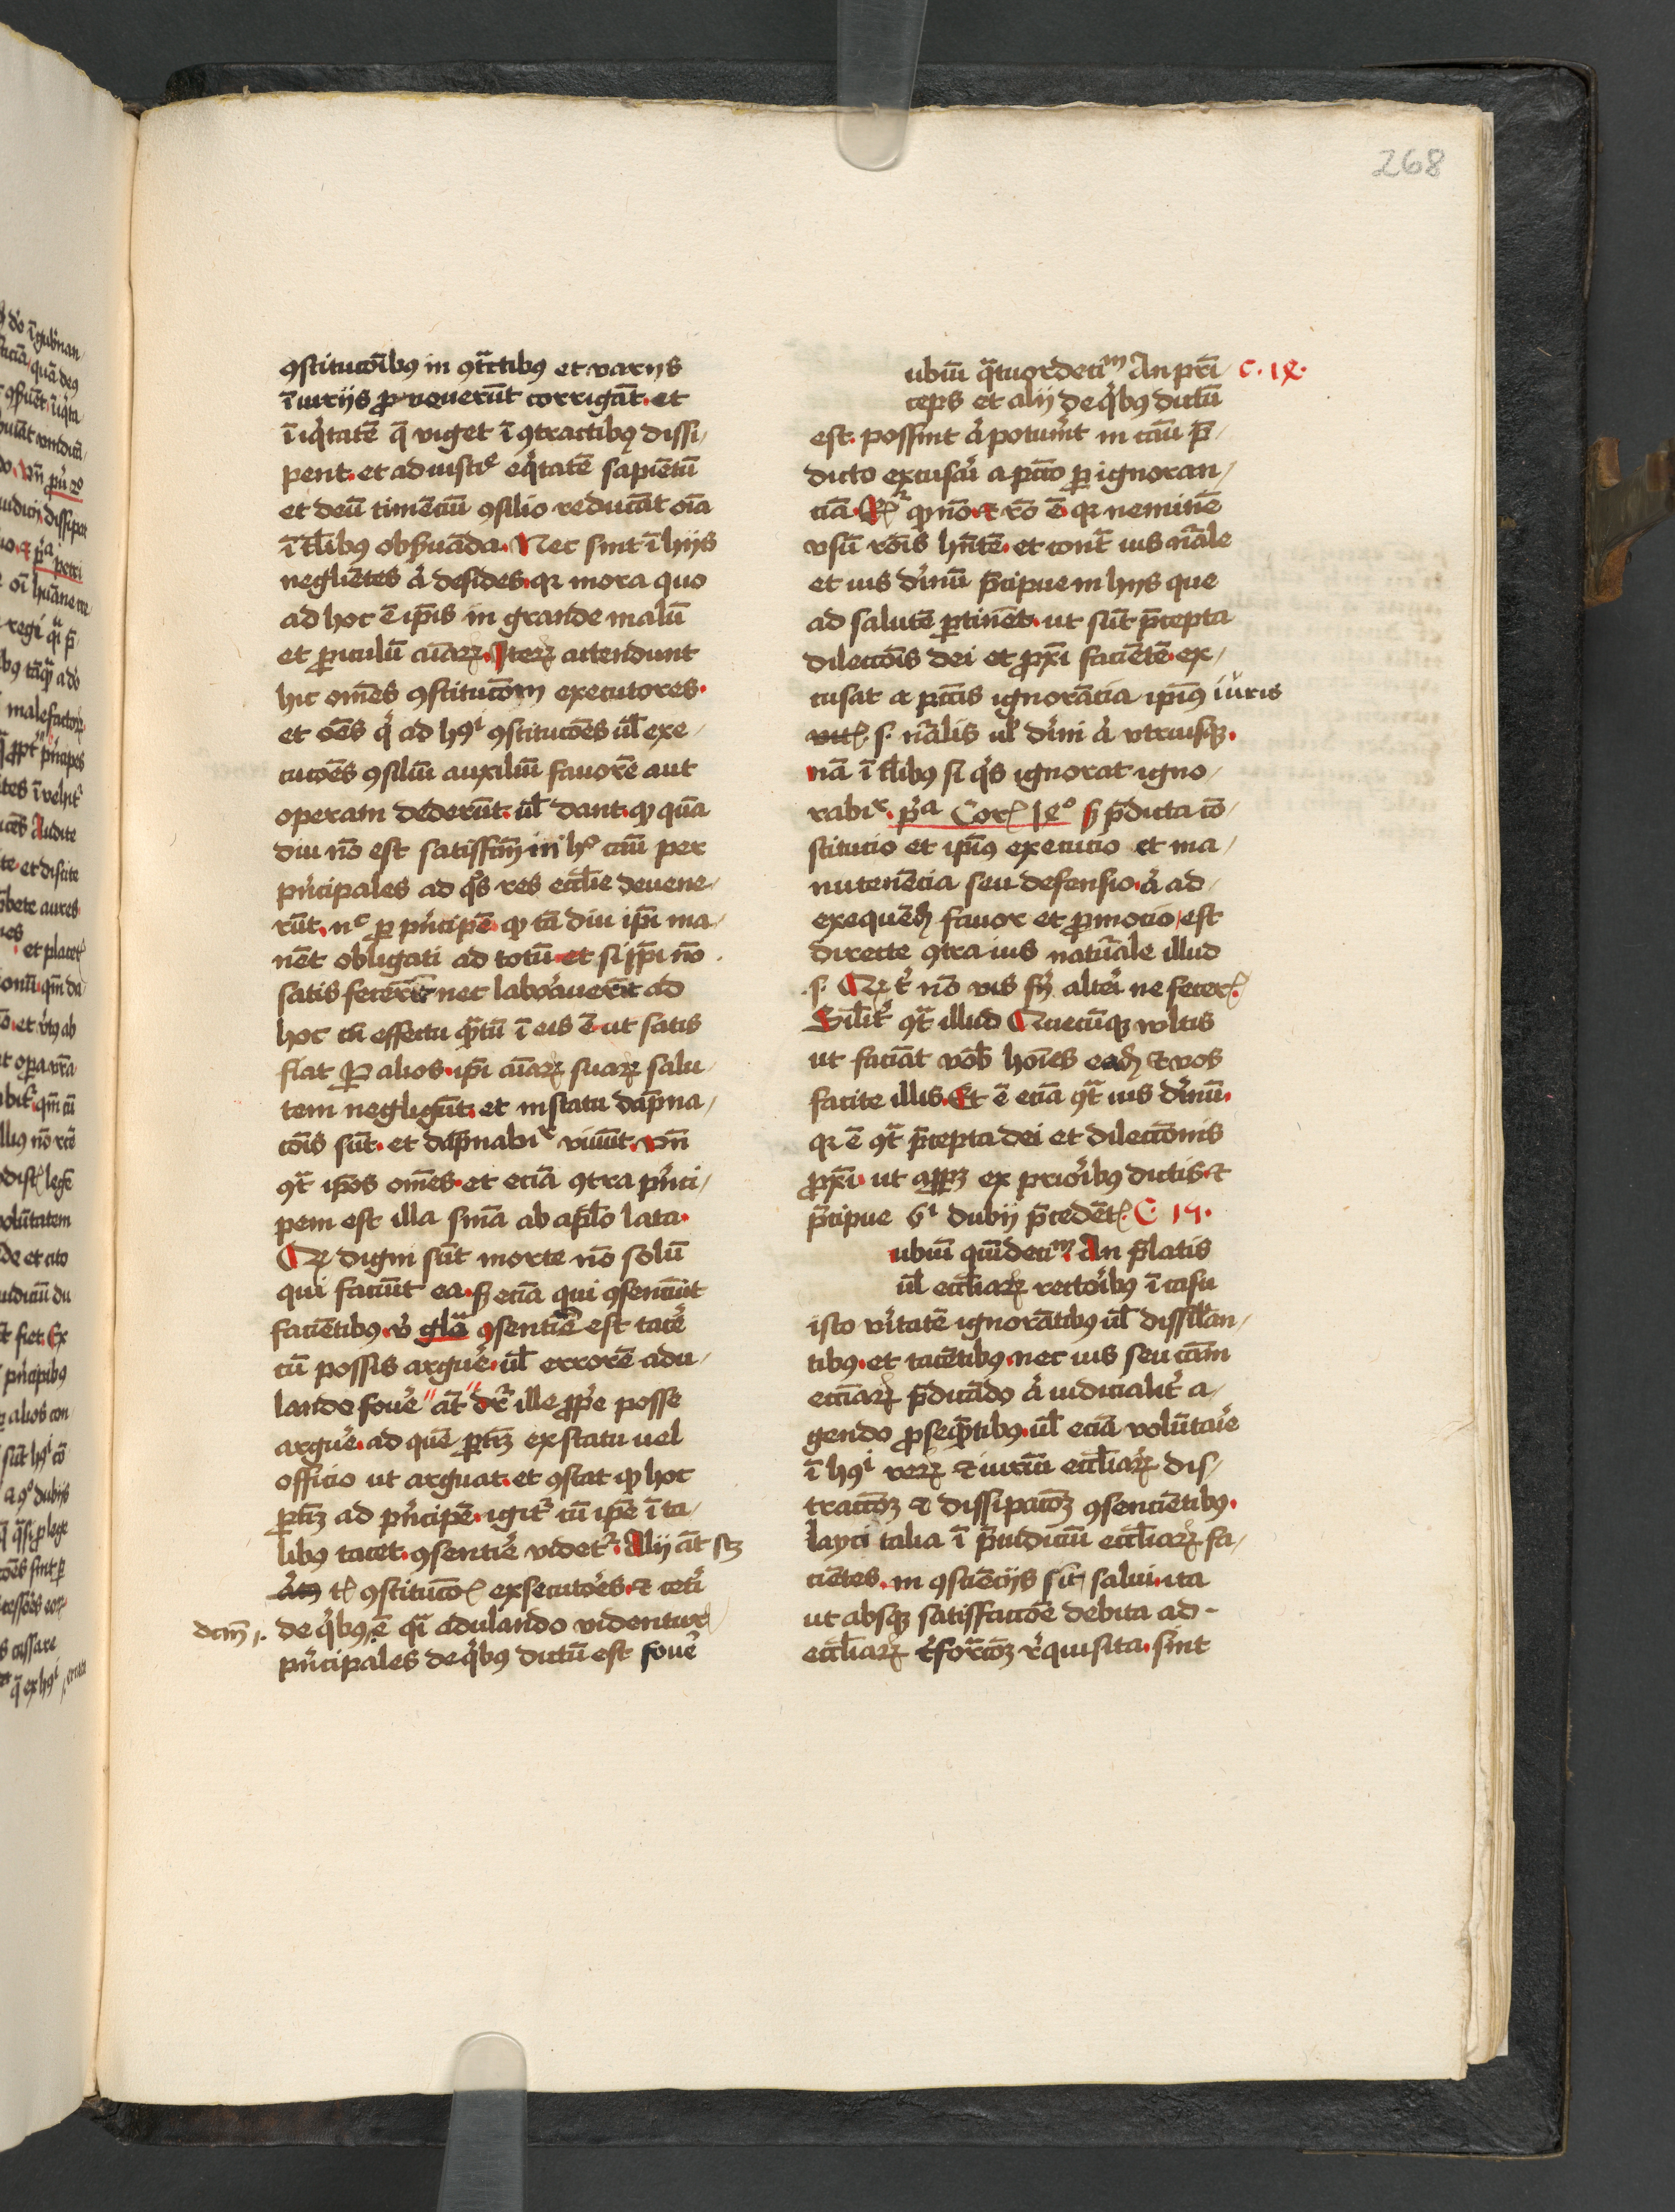 268
ꝯstitucōibꝰ in ꝯtͣctibꝰ et varijs
ī iurijs ꝓ ut querūt corrigāt. et
ī iqͥtatē q̄ viget ī ꝯtractibꝰ dissi/
pent. et ad iusticie eqͥtatē sapiētū
et deū timēciū ꝯsilio reducāt oīa
ī tl̄ibꝰ obẜuāda. Nec sint ī hijs
negliētes aͥ desides. qꝛ mora quo
ad hoc ē ip̄is in grande malū
et ꝑiculū aīaꝝ. Iteꝝ attendunt
hic om̄es ꝯstitucōm executores.
et oēs qͥ ad hꝰꝰi ꝯstitucōes ul̄ exe/
cucōes ꝯsiliū auxiliū fauorē aut
operam dederūt. ul̄ dant. ꝙ quā
diu nō est satisffm̄ in hͦ casu per
pͥncipales ad qͦs res eccl̄ie deuene/
rūt. nͨ ꝑ pͥncipē. ꝙ tā diu ip̄i ma/
nēt obligati ad totū. et si ip̄i nō
satis fecerīt nec laborauerīt ad
hoc cū effectu qͣtū ī eis ē. ut satis
fiat ꝑ alios. ip̄i aīaꝝ suaꝝ salu/
tem negligūt. et in statu dāpna/
cōis sūt. et dāpnabiͬ viuūt. vn̄
ꝯtͣ ip̄os om̄es. et eciā ꝯtra pͥnci/
pem est illa sn̄ia ab apl̄o lata.
Qꝛ digni sūt morte nō solū
qui faciūt ea. ẜ eciā qui ꝯsenciūt
faciētibꝰ. vͥ glō ꝯsentiē est tacē
cū possis arguē. ul̄ errorē adu/
lando fouē " āt " dr̄ ille ꝓpe posse
arguē. ad quē ꝑtīꝫ ex statu uel
officio ut arguat. et ꝯstat ꝙ hoc
ꝑtīꝫ ad pͥncipē. igitͬ cū ip̄e ī ta/
libꝰ tacet. ꝯsentiē videtͬ. Alij āt sꝫ
tl̄ ꝯstitucō exsecutores. ⁊ cetͥ
dcm̄ 1. de qͥbꝰ ē qͣi adulando videntur
pͥncipales de qͥbꝰ dictū est fouē
ubiū qͣtuordeciᵐ An pri/ C. 1ꝭ.
ceps et alij de qͥbꝰ dictū
est. possint aͥ potuͥnt in casu p̄/
dicto excusari a pctō ꝑ ignoran/
ciā. Rͬ ꝙ nō. ⁊ rō ē. qꝛ neminē
vsū rōis hn̄tē. et contͣ ius nāle
et ius diuinū p̄cipue in hijs que
ad salutē ꝑtinēt. ut sūt p̄cepta
dilectōis dei et ꝓxi faciētē. ex/
cusat a pctīs ignorācia ipiꝰ iuris
s. nālis ul̄ diuini aͥ vtriusqꝫ.
nā ī tl̄ibꝰ si qͥs ignorat igno/
rabiͬ. pͥᵃ Cor. 1ꝭº ẜ p̄dicta cō/
stitucio et ipiꝰ execucio et ma/
nutenēcia seu defensio. aͥ ad
exequēd favor et ꝓmocio, est
directe ꝯtra ius naturale illud
s. Qꝛ tͥ nō vis fiͥ alteri ne fecer.
Silitͬ ꝯtͣ illud Quecūqꝫ vͦltis
ut faciāt vob hoīes eadē ⁊ vos
facite illis. Et ē eciā ꝯtͣ ius diuinū.
qꝛ ē ꝯtͣ p̄cepta dei et dilectōnis
ꝓxi. ut aꝑꝫ ex prioribꝰ dictis. ⁊
p̄cipue 6ⁱ dubij p̄cedēt. C. 15.
ubiū quīdeciᵐ. An p̄latis
ul̄ eccl̄iaꝝ rectoribꝰ ī casu
isto vͥtatē ignorātibꝰ ul̄ dissil̄an/
tibꝰ. et tacētibꝰ. nec ius seu cām
eccīaꝝ p̄dicādo aͥ iudicialitͬ a/
gendo ꝓseqͣtibꝰ. ul̄ eciā volūtarie
ī hꝰꝰi reꝝ ⁊ iuriū eccl̄iaꝝ dis/
tractōꝫ ⁊ dissipacōꝫ ꝯsenciētibꝰ.
layci talia ī p̄iudiciū eccl̄iaꝝ fa/
ciētes. in ꝯsciēcijs sīt salui. ita
ut absqꝫ satisfactōe debita ad
eccl̄iaꝝ rͥforͣcōꝫ rͥquisita. sint